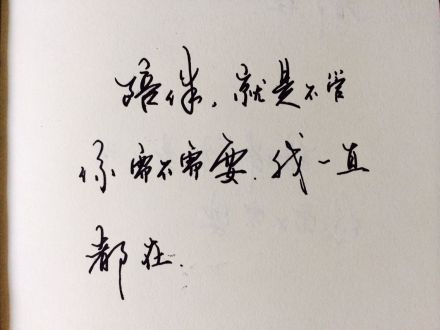 陪伴,就是不管
你需不需要.我一直
都在.